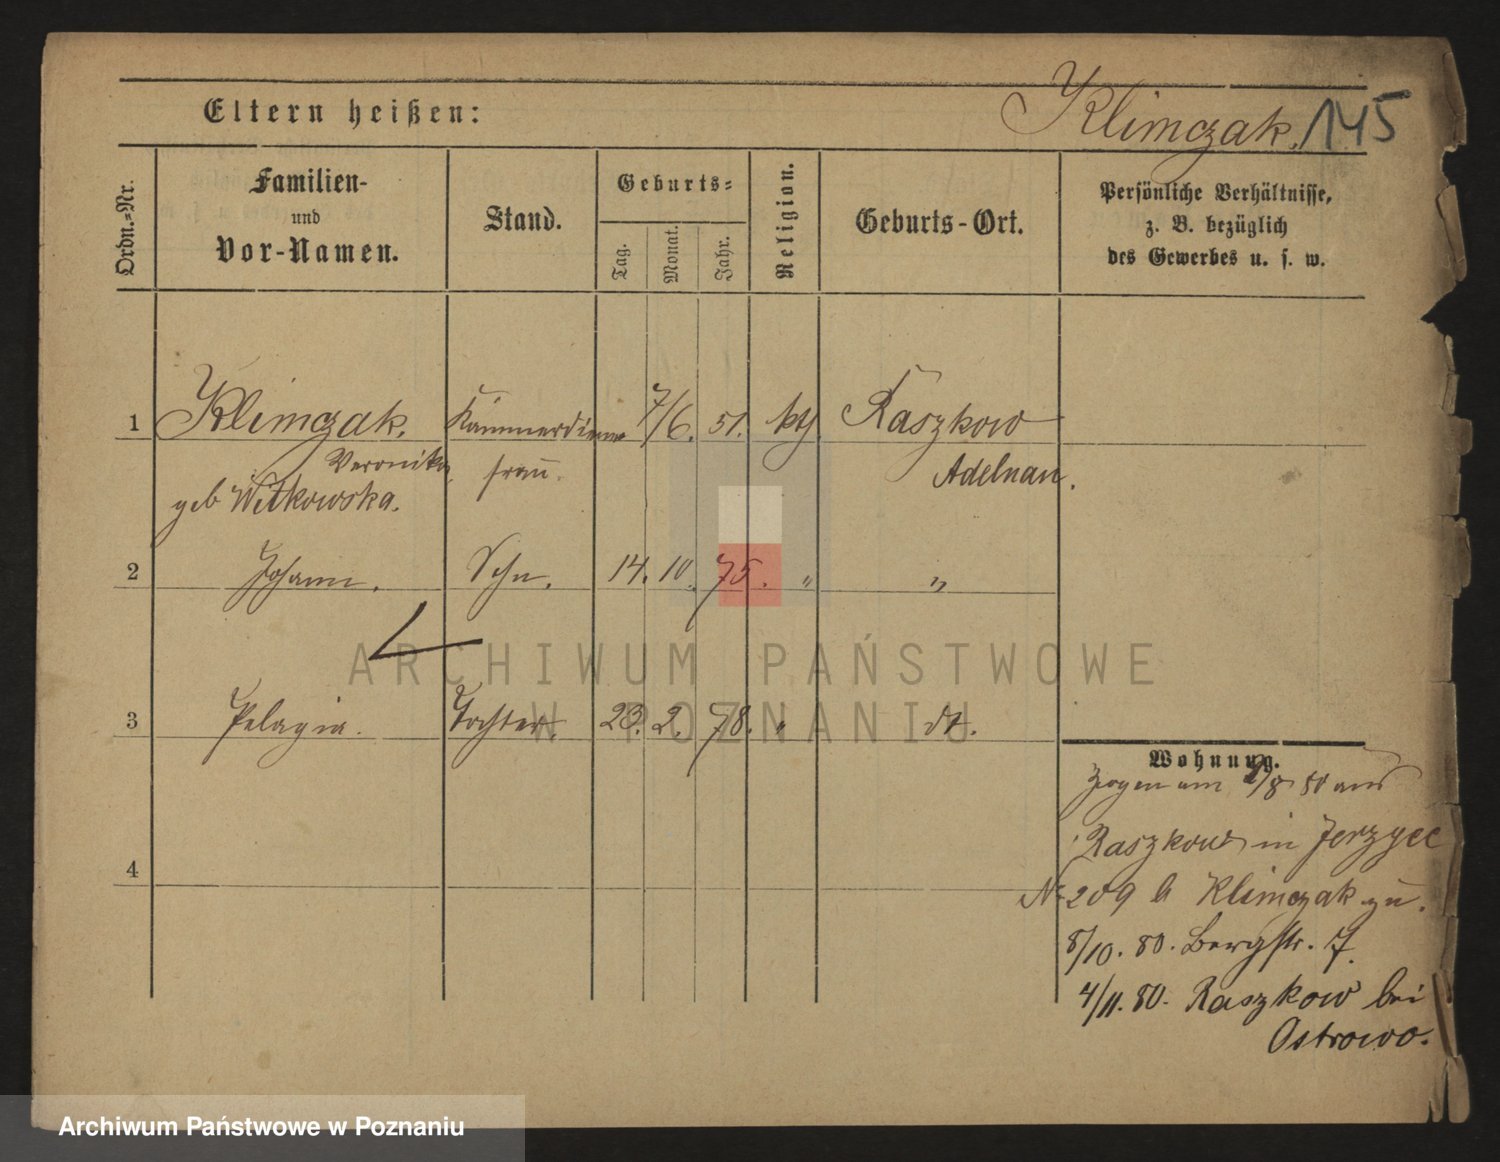 Eltern heißen:
Klimczak. 145
Ordn.=Nr.
Familien-
und
Vor-Namen.
Stand.
Geburts=
Tag.
Monat.
Jahr.
Religion.
Geburts-Ort.
Persönliche Verhältnisse,
z. B. bezüglich
des Gewerbes u. s. w.
1 Klimczak. Kammerdiener 7/6. 51. kth Raszkow
Veronika frau. Adelnau.
geb Witkowska.
2 Johann. Sohn. 14. 10. 75. " "
3 Pelagia. Tochter. 23. 2. 78. " dt.
4
Wohnung.
Zogen am /8 80 aus
Raszkow in Jerzyce
No 209 b Klimczak zu.
8/10. 80. Bergstr. 7.
4/11. 80. Raszkow bei
Ostrowo.
ARCHIWUM PAŃSTWOWE
W POZNANIU
Archiwum Państwowe w Poznaniu